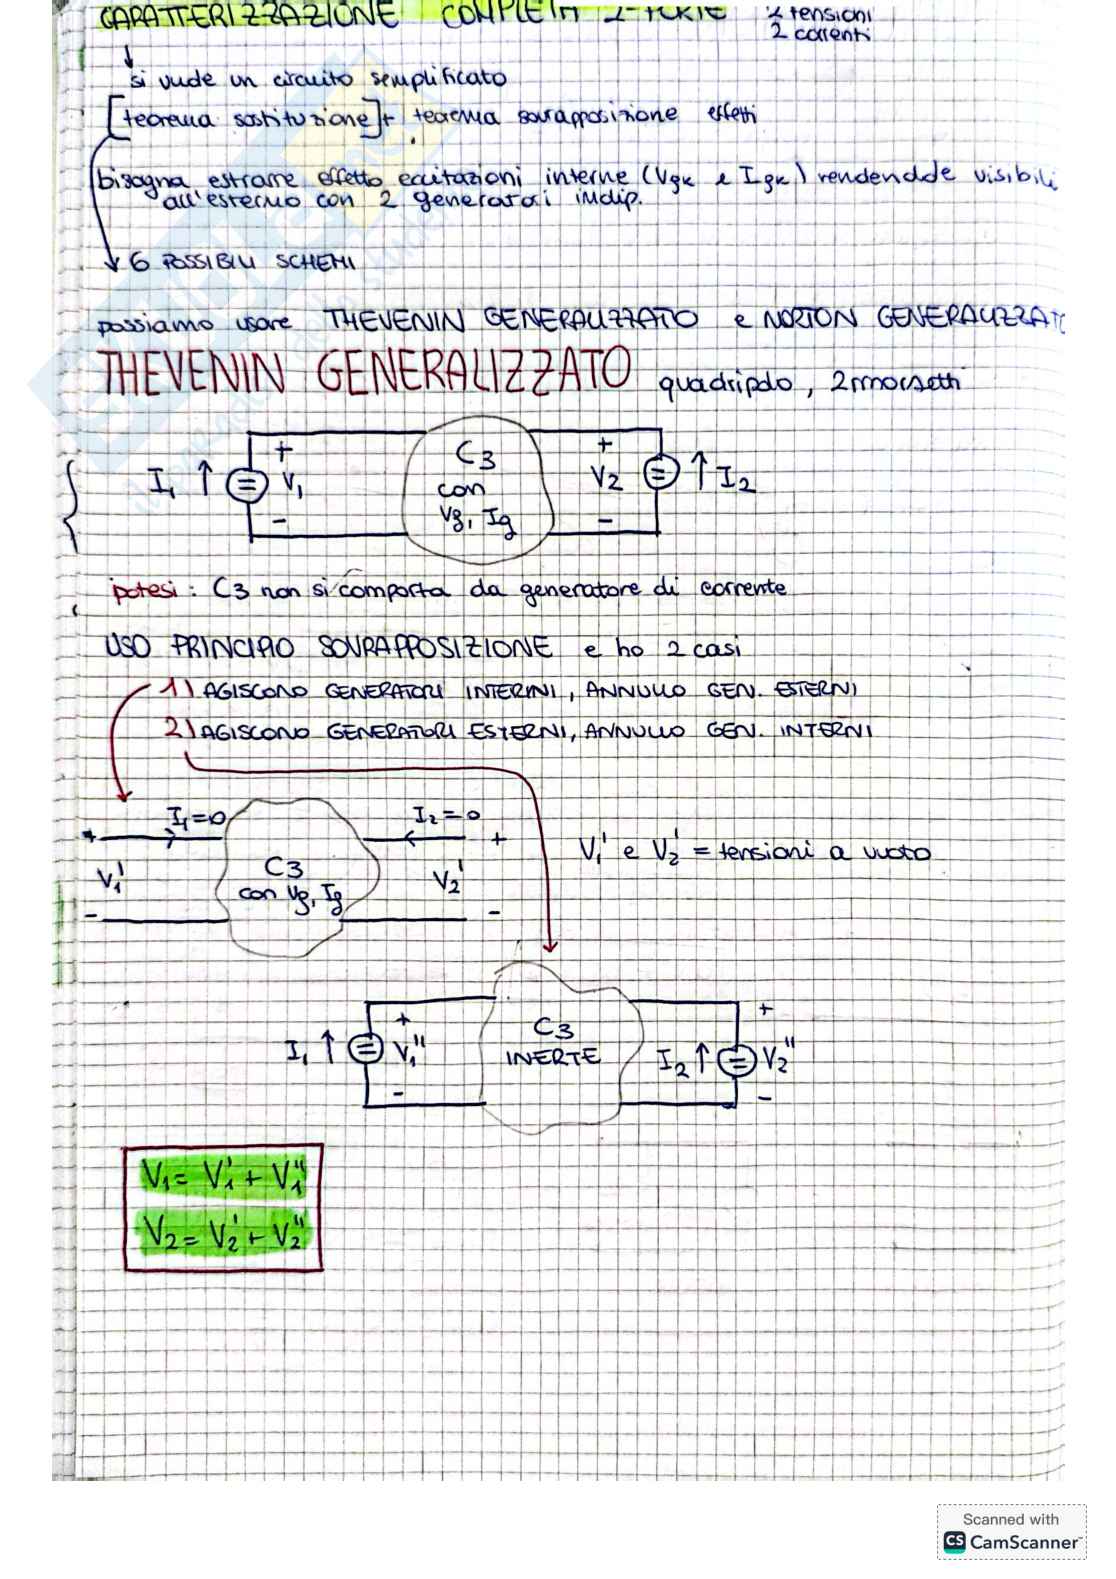 CARATTERIZZAZIONE COMPLETA 2-PORTE 2 tensioni
2 correnti
si vuole un circuito semplificato
[teorema sostituzione]+ teorema sovrapposizione effetti
bisogna estrarre effetto eccitazioni interne (Vgk e Igk) rendendole visibili
all'esterno con 2 generatori indip.
6 POSSIBILI SCHEMI
possiamo usare THEVENIN GENERALIZZATO e NORTON GENERALIZZATO
THEVENIN GENERALIZZATO quadripolo, 2morsetti
I1 ↑ + V1 - C3 con Vg, Ig + V2 - ↑ I2
ipotesi: C3 non si comporta da generatore di corrente
USO PRINCIPIO SOVRAPPOSIZIONE e ho 2 casi
1) AGISCONO GENERATORI INTERNI, ANNULLO GEN. ESTERNI
2) AGISCONO GENERATORI ESTERNI, ANNULLO GEN. INTERNI
I1=0 I2=0
+ V1' - C3 con Vg, Ig + V2' -
V1' e V2' = tensioni a vuoto
I1 ↑ + V1" - C3 INERTE I2 ↑ + V2" -
V1 = V1' + V1"
V2 = V2' + V2"
Scanned with
CS CamScanner